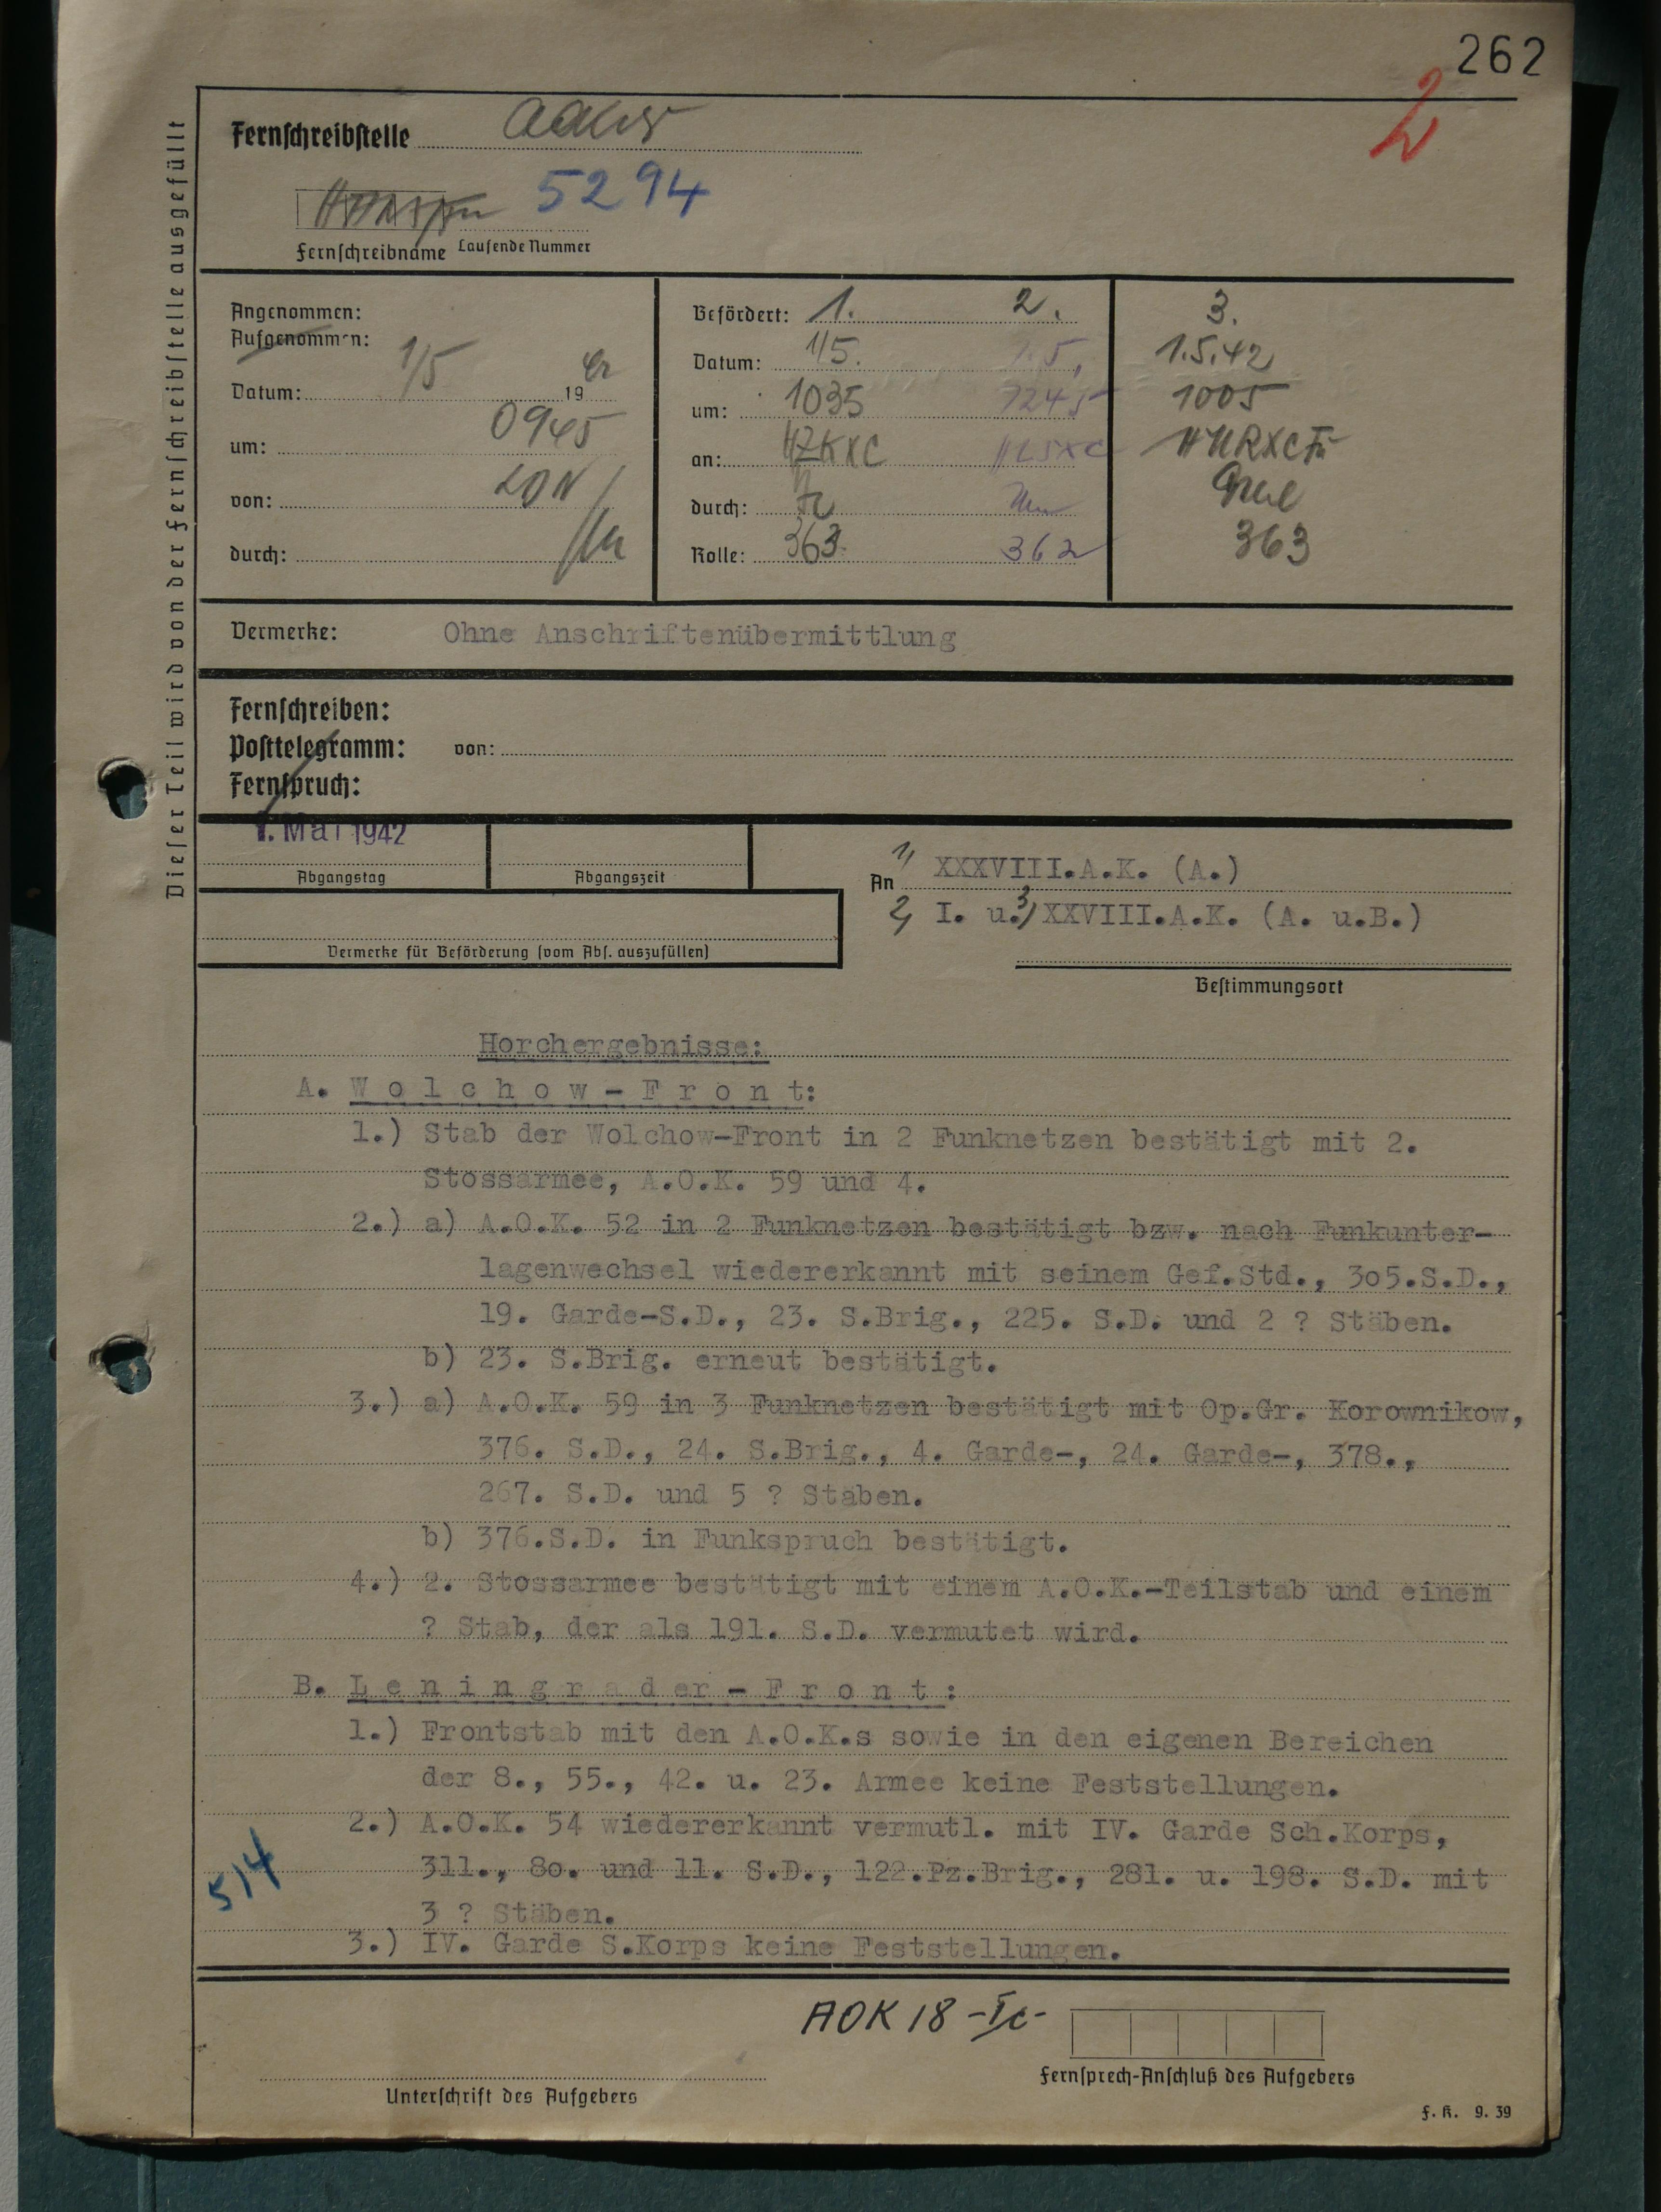 262
2
Fernschreibstelle
5294
Fernschreibname Laufende Nummer
Dieser Teil wird von der Fernschreibstelle ausgefüllt
Angenommen:
Aufgenommen:
Datum: 1/5 19 42
um: 0945
von: LDN
durch:
Befördert: 1. 2. 3.
Datum: 1/5. 1.5. 1.5.42
um: 1035 1245 1005
an: HZKXC HLSXC HURXC
durch:
Rolle: 363 362 363
Vermerke: Ohne Anschriftenübermittlung
Fernschreiben:
Posttelegramm: von:
Fernspruch:
1. Mai 1942
Abgangstag Abgangszeit
Vermerke für Beförderung (vom Abs. auszufüllen)
An 1) XXXVIII.A.K. (A.)
2) I. u.3) XXVIII.A.K. (A. u.B.)
Bestimmungsort
Horchergebnisse:
A. W o l c h o w - F r o n t:
1.) Stab der Wolchow-Front in 2 Funknetzen bestätigt mit 2.
Stossarmee, A.O.K. 59 und 4.
2.) a) A.O.K. 52 in 2 Funknetzen bestätigt bzw. nach Funkunter-
lagenwechsel wiedererkannt mit seinem Gef.Std., 3o5.S.D.,
19. Garde-S.D., 23. S.Brig., 225. S.D. und 2 ? Stäben.
b) 23. S.Brig. erneut bestätigt.
3.) a) A.O.K. 59 in 3 Funknetzen bestätigt mit Op.Gr. Korownikow,
376. S.D., 24. S.Brig., 4. Garde-, 24. Garde-, 378.,
267. S.D. und 5 ? Stäben.
b) 376.S.D. in Funkspruch bestätigt.
4.) 2. Stossarmee bestätigt mit einem A.O.K.-Teilstab und einem
? Stab, der als 191. S.D. vermutet wird.
B. L e n i n g r a d er - F r o n t :
1.) Frontstab mit den A.O.K.s sowie in den eigenen Bereichen
der 8., 55., 42. u. 23. Armee keine Feststellungen.
2.) A.O.K. 54 wiedererkannt vermutl. mit IV. Garde Sch.Korps,
311., 8o. und 11. S.D., 122.Pz.Brig., 281. u. 198. S.D. mit
3 ? Stäben.
3.) IV. Garde S.Korps keine Feststellungen.
5/4
AOK 18 -Ic-
Unterschrift des Aufgebers
Fernsprech-Anschluß des Aufgebers
F. K. 9. 39